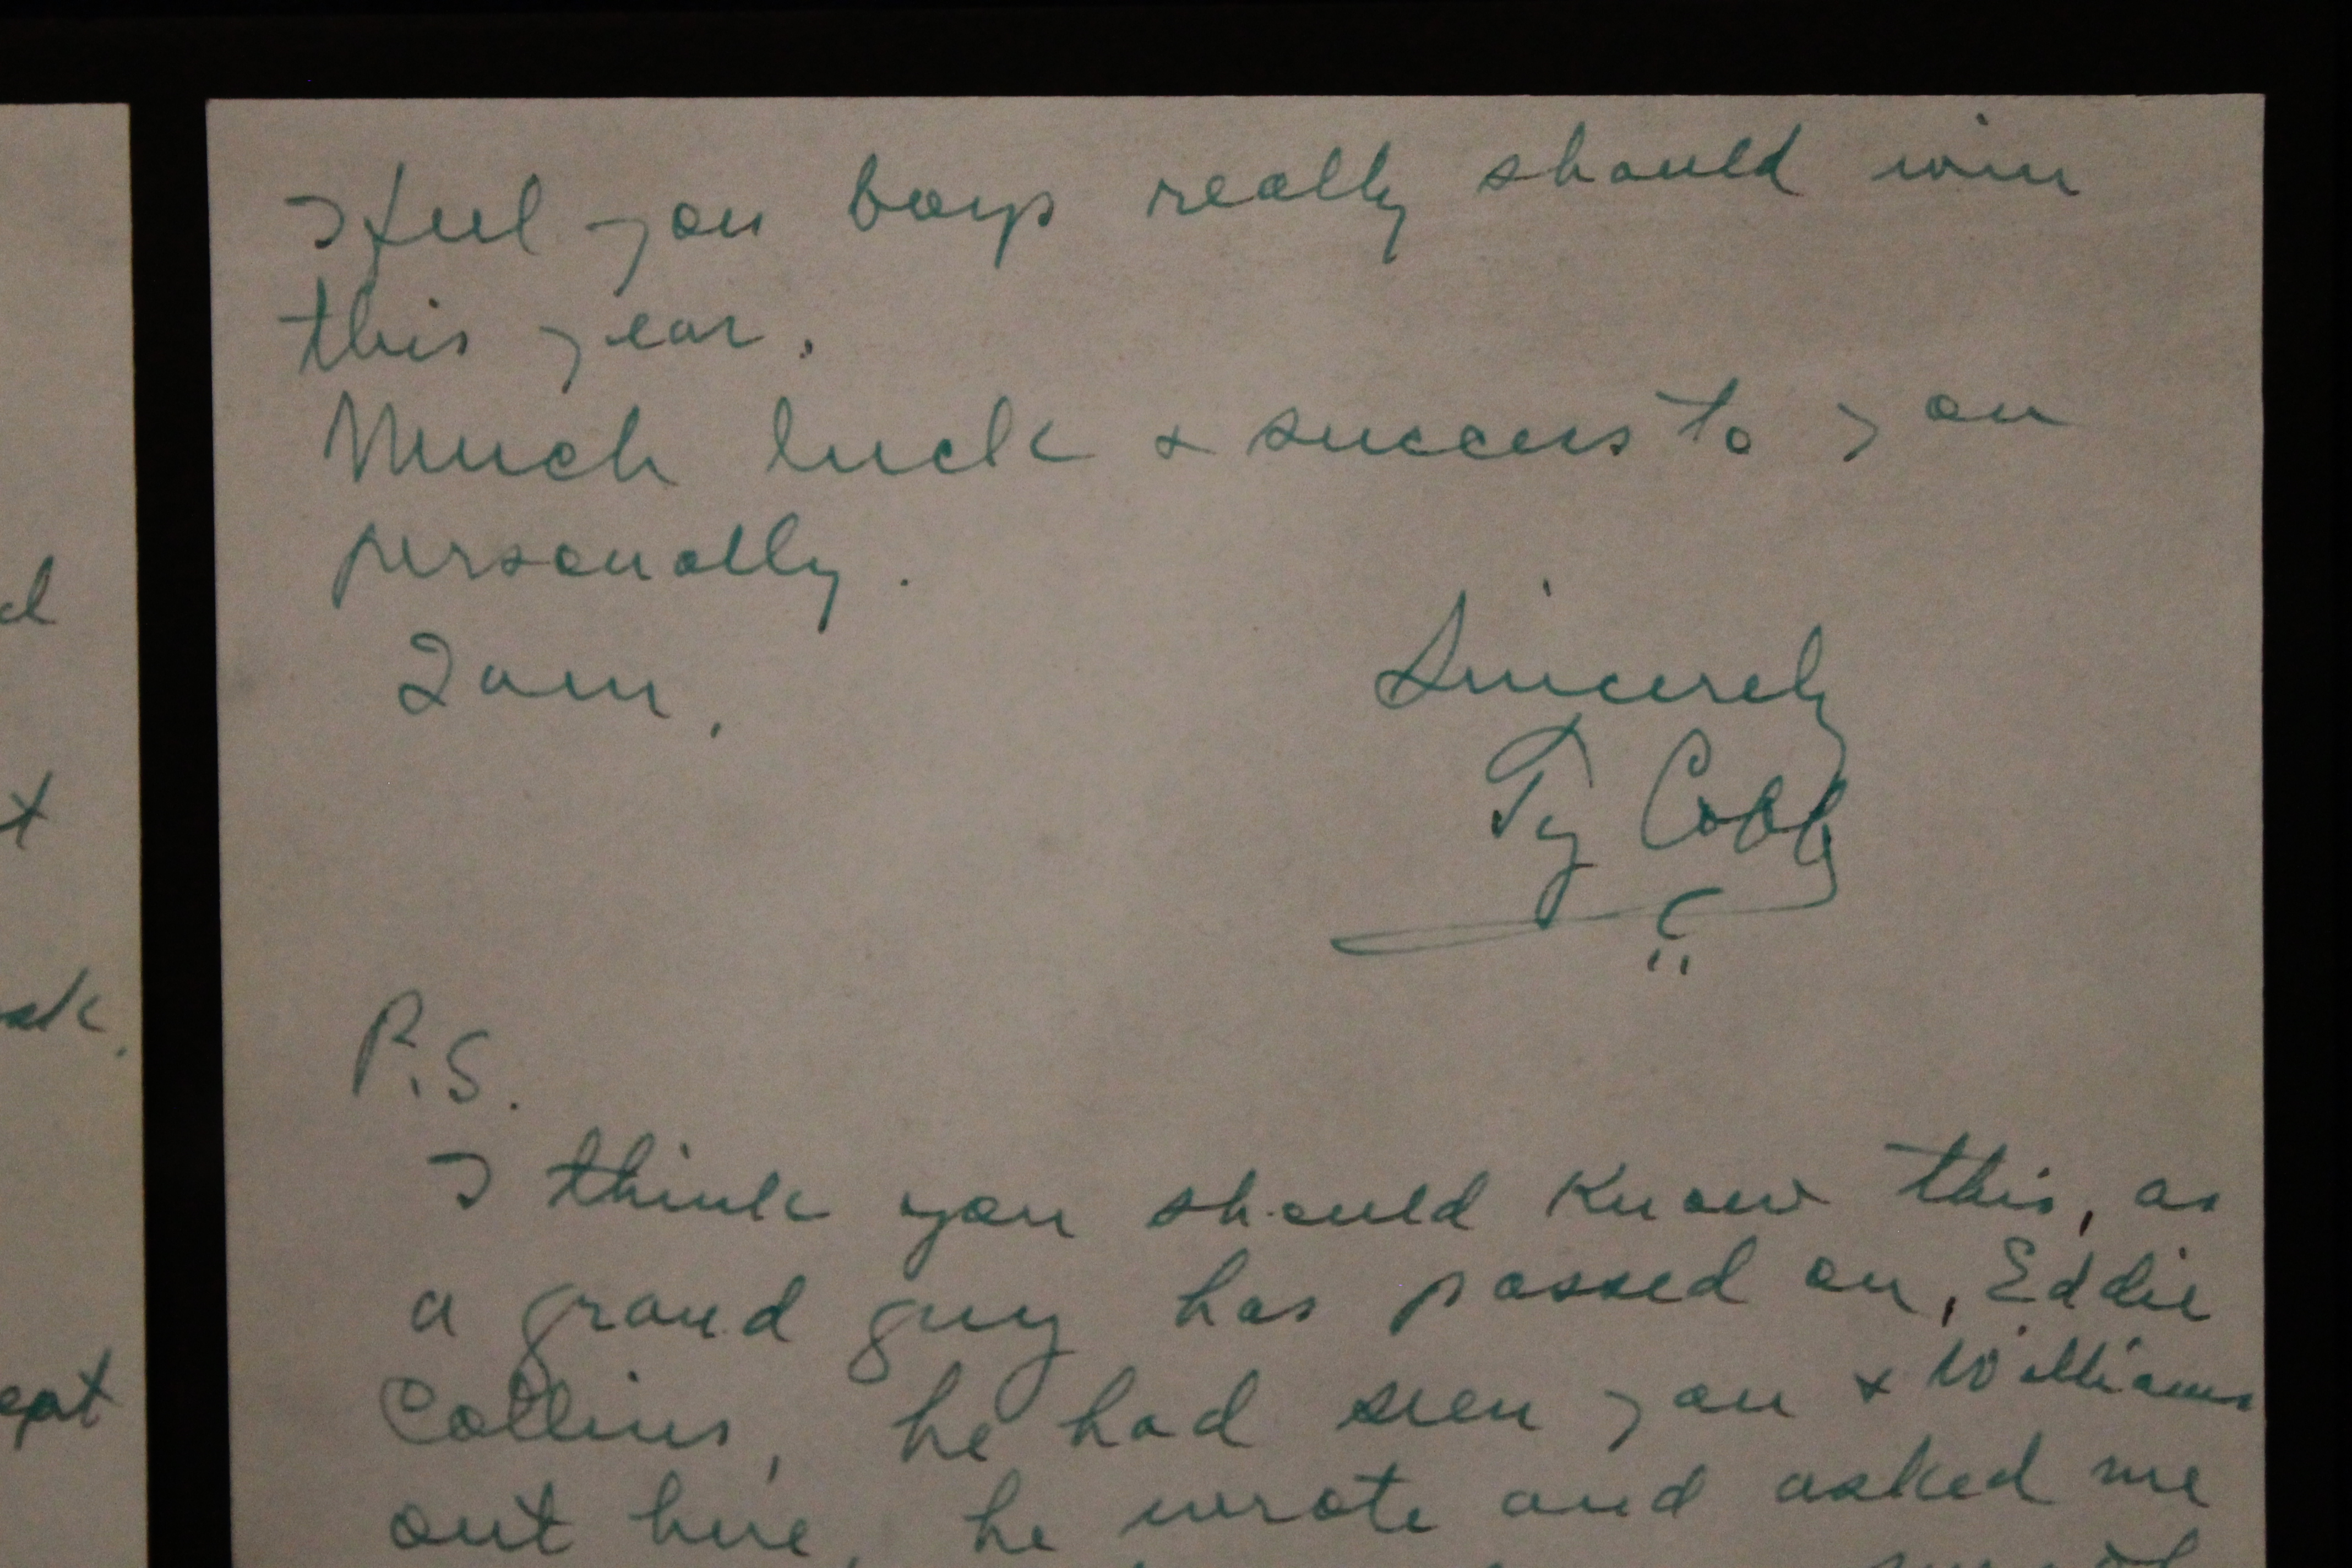 I feel you boys really should win
this year.
Much luck & success to you
personally.
I am,
Sincerely
Ty Cobb
P.S.
I think you should know this, as
a grand guy has passed on, Eddie
Collins, he had seen you & Williams
out here, he wrote and asked me